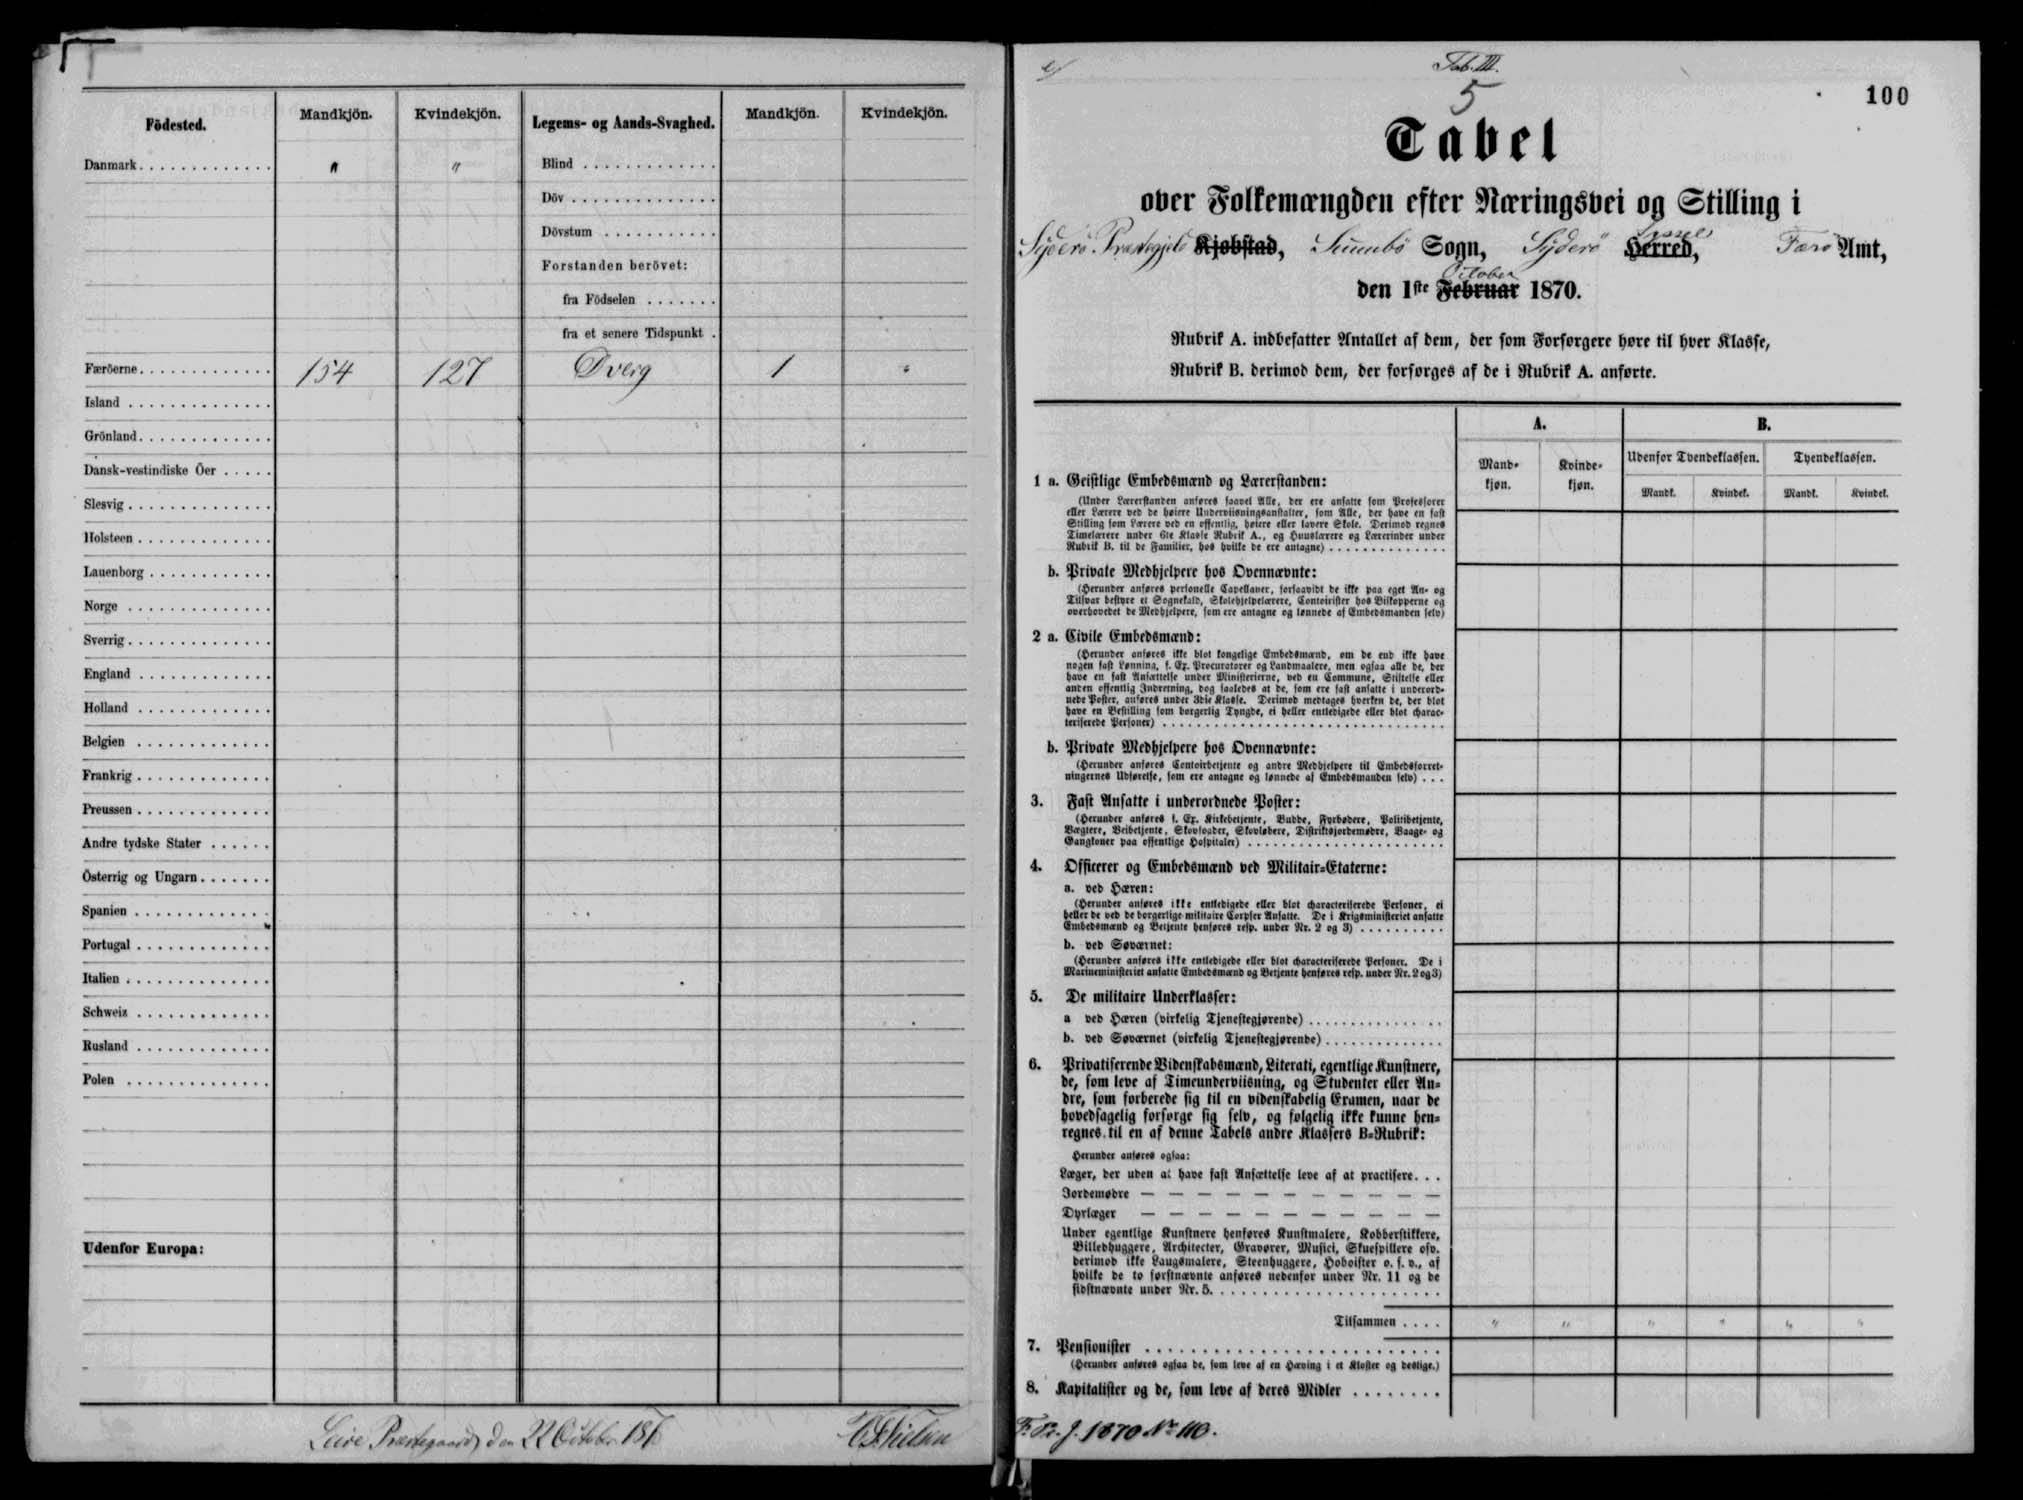 Födested. Mandkjön. Kvindekjön. Legems- og Aands-Svaghed. Mandkjön. Kvindekjön.
Danmark . . . . . . . . . . . . . " "
Blind . . . . . . . . . . . . .
Döv . . . . . . . . . . . . . .
Dövstum . . . . . . . . . . .
Forstanden berövet:
fra Födselen . . . . . . .
fra et senere Tidspunkt .
Færöerne . . . . . . . . . . . . 154 127 Dverg 1 "
Island . . . . . . . . . . . . . .
Grönland . . . . . . . . . . . . .
Dansk-vestindiske Öer . . . . .
Slesvig . . . . . . . . . . . . . .
Holsteen . . . . . . . . . . . . .
Lauenborg . . . . . . . . . . . .
Norge . . . . . . . . . . . . . .
Sverrig . . . . . . . . . . . . . .
England . . . . . . . . . . . . .
Holland . . . . . . . . . . . . .
Belgien . . . . . . . . . . . . .
Frankrig . . . . . . . . . . . . .
Preussen . . . . . . . . . . . . .
Andre tydske Stater . . . . . .
Österrig og Ungarn . . . . . . .
Spanien . . . . . . . . . . . . .
Portugal . . . . . . . . . . . . .
Italien . . . . . . . . . . . . . .
Schweiz . . . . . . . . . . . . .
Rusland . . . . . . . . . . . . .
Polen . . . . . . . . . . . . . .
Udenfor Europa:
Præstegaard d 22 October 187
Nielsen
Tab. III.
5
100
Tabel
over Folkemængden efter Næringsvei og Stilling i
Syderø Præstegjeld Kjøbstad, Sumbø Sogn, Syderø Herred, Syssel Færø Amt,
den 1ste Februar October 1870.
Rubrik A. indbefatter Antallet af dem, der som Forsørgere høre til hver Klasse,
Rubrik B. derimod dem, der forsørges af de i Rubrik A. anførte.
A. B.
Mandkjøn. Kvindekjøn. Udenfor Tyendeklassen. Tyendeklassen.
Mandk. Kvindek. Mandk. Kvindek.
1 a. Geistlige Embedsmænd og Lærerstanden:
(Under Lærerstanden anføres saavel Alle, der ere ansatte som Professorer
eller Lærere ved de høiere Underviisningsanstalter, som Alle, der have en fast
Stilling som Lærere ved en offentlig, høiere eller lavere Skole. Derimod regnes
Timelærere under 6te Klasse Rubrik A., og Huuslærere og Lærerinder under
Rubrik B. til de Familier, hos hvilke de ere antagne) . . . . . . . . . . . . . .
b. Private Medhjelpere hos Ovennævnte:
(Herunder anføres personelle Capellaner, forsaavidt de ikke paa eget An- og
Tilsvar bestyre et Sognekald, Skolehjelpelærere, Contoirister hos Biskopperne og
overhovedet de Medhjelpere, som ere antagne og lønnede af Embedsmanden selv)
2 a. Civile Embedsmænd:
(Herunder anføres ikke blot kongelige Embedsmænd, om de end ikke have
nogen fast Lønning, f. Ex. Procuratorer og Landmaalere, men ogsaa alle de, der
have en fast Ansættelse under Ministerierne, ved en Commune, Stiftelse eller
anden offentlig Indretning, dog saaledes at de, som ere fast ansatte i underord-
nede Poster, anføres under 3die Klasse. Derimod medtages hverken de, der blot
have en Bestilling som borgerlig Tyngde, ei heller entledigede eller blot charac-
teriserede Personer) . . . . . . . . . . . . . . . . . . . . . . . . . . . . . .
b. Private Medhjelpere hos Ovennævnte:
(Herunder anføres Contoirbetjente og andre Medhjelpere til Embedsforret-
ningernes Udførelse, som ere antagne og lønnede af Embedsmanden selv) . . .
3. Fast Ansatte i underordnede Poster:
(Herunder anføres f. Ex. Kirkebetjente, Budde, Fyrbødere, Politibetjente,
Vægtere, Veibetjente, Skovfogder, Skovløbere, Distriktsjordemødre, Vaage- og
Gangkoner paa offentlige Hospitaler) . . . . . . . . . . . . . . . . . . . . .
4. Officerer og Embedsmænd ved Militair-Etaterne:
a. ved Hæren:
(Herunder anføres ikke entledigede eller blot characteriserede Personer, ei
heller de ved de borgerlige militaire Corpser Ansatte. De i Krigsministeriet ansatte
Embedsmænd og Betjente henføres resp. under Nr. 2 og 3) . . . . . . . . . .
b. ved Søværnet:
(Herunder anføres ikke entledigede eller blot characteriserede Personer. De i
Marineministeriet ansatte Embedsmænd og Betjente henføres resp. under Nr. 2 og 3)
5. De militaire Underklasser:
a ved Hæren (virkelig Tjenestegjørende) . . . . . . . . . . . . . .
b. ved Søværnet (virkelig Tjenestegjørende) . . . . . . . . . . . . .
6. Privatiserende Videnskabsmænd, Literati, egentlige Kunstnere,
de, som leve af Timeunderviisning, og Studenter eller An-
dre, som forberede sig til en videnskabelig Examen, naar de
hovedsagelig forsørge sig selv, og følgelig ikke kunne hen-
regnes til en af denne Tabels andre Klassers B-Rubrik:
Herunder anføres ogsaa:
Læger, der uden at have fast Ansættelse leve af at practisere. . .
Jordemødre — — — — — — — — — — —
Dyrlæger — — — — — — — — — — —
Under egentlige Kunstnere henføres Kunstmalere, Kobberstikkere,
Billedhuggere, Architecter, Gravører, Musici, Skuespillere osv.
derimod ikke Laugsmalere, Steenhuggere, Hoboister o. s. v., af
hvilke de to førstnævnte anføres nedenfor under Nr. 11 og de
sidstnævnte under Nr. 5. . . . . . . . . . . . . . . . . . . . . .
Tilsammen . . . . " " " " " "
7. Pensionister . . . . . . . . . . . . . . . . . . . . . . . . .
(Herunder anføres ogsaa de, som leve af en Hæving i et Kloster og deslige.)
8. Kapitalister og de, som leve af deres Midler . . . . . . . .
F. Pr. J. 1870 No 110.